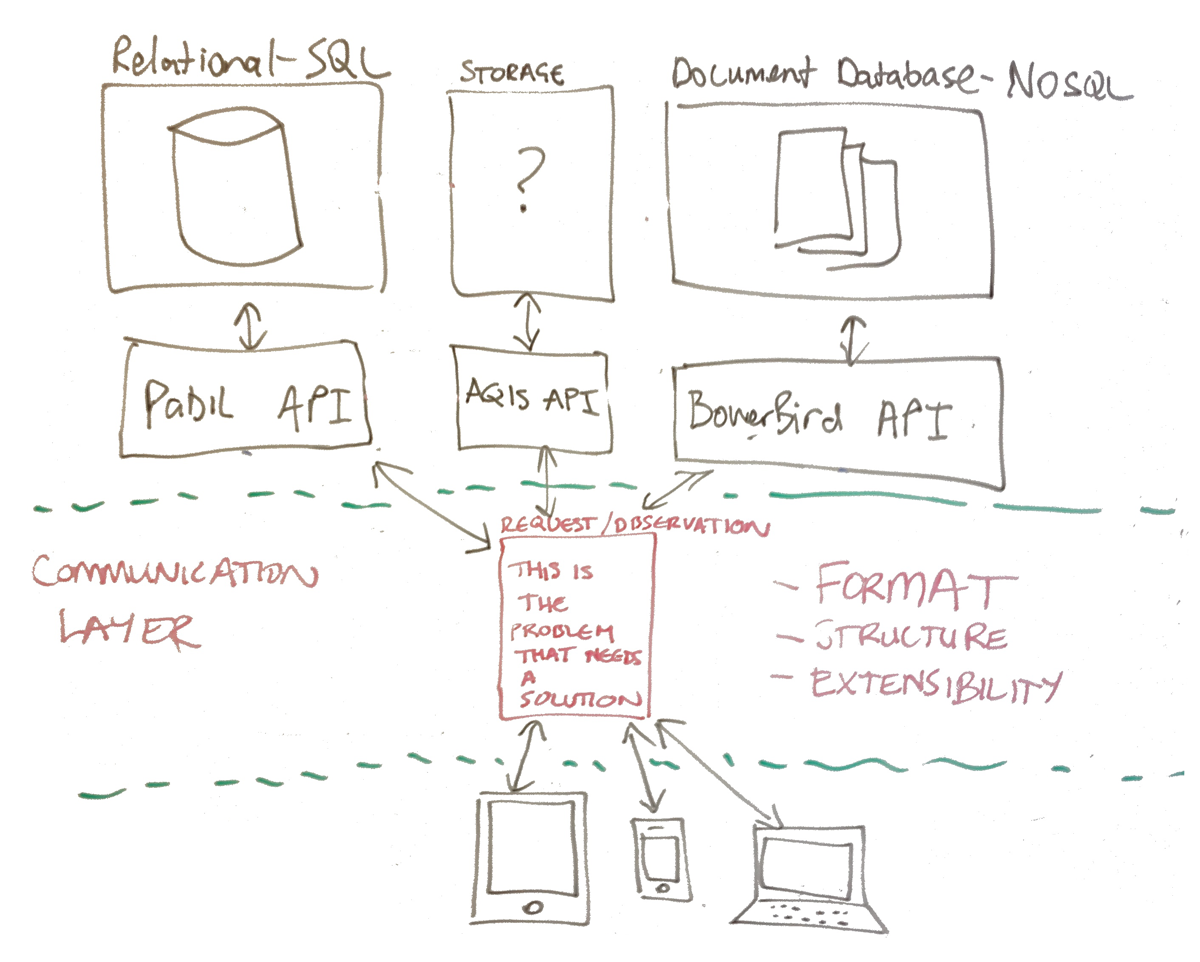 Relational-SQL
STORAGE
Document Database-NOSQL
?
PaDIL API
AQIS API
BowerBird API
REQUEST/OBSERVATION
COMMUNICATION
LAYER
THIS IS
THE
PROBLEM
THAT NEEDS
A
SOLUTION
- FORMAT
- STRUCTURE
- EXTENSIBILITY